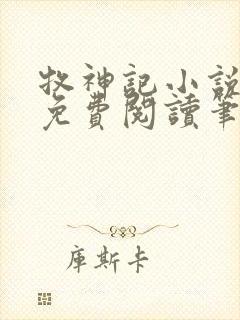 牧神記小說
免費閱讀筆
庫斯卡